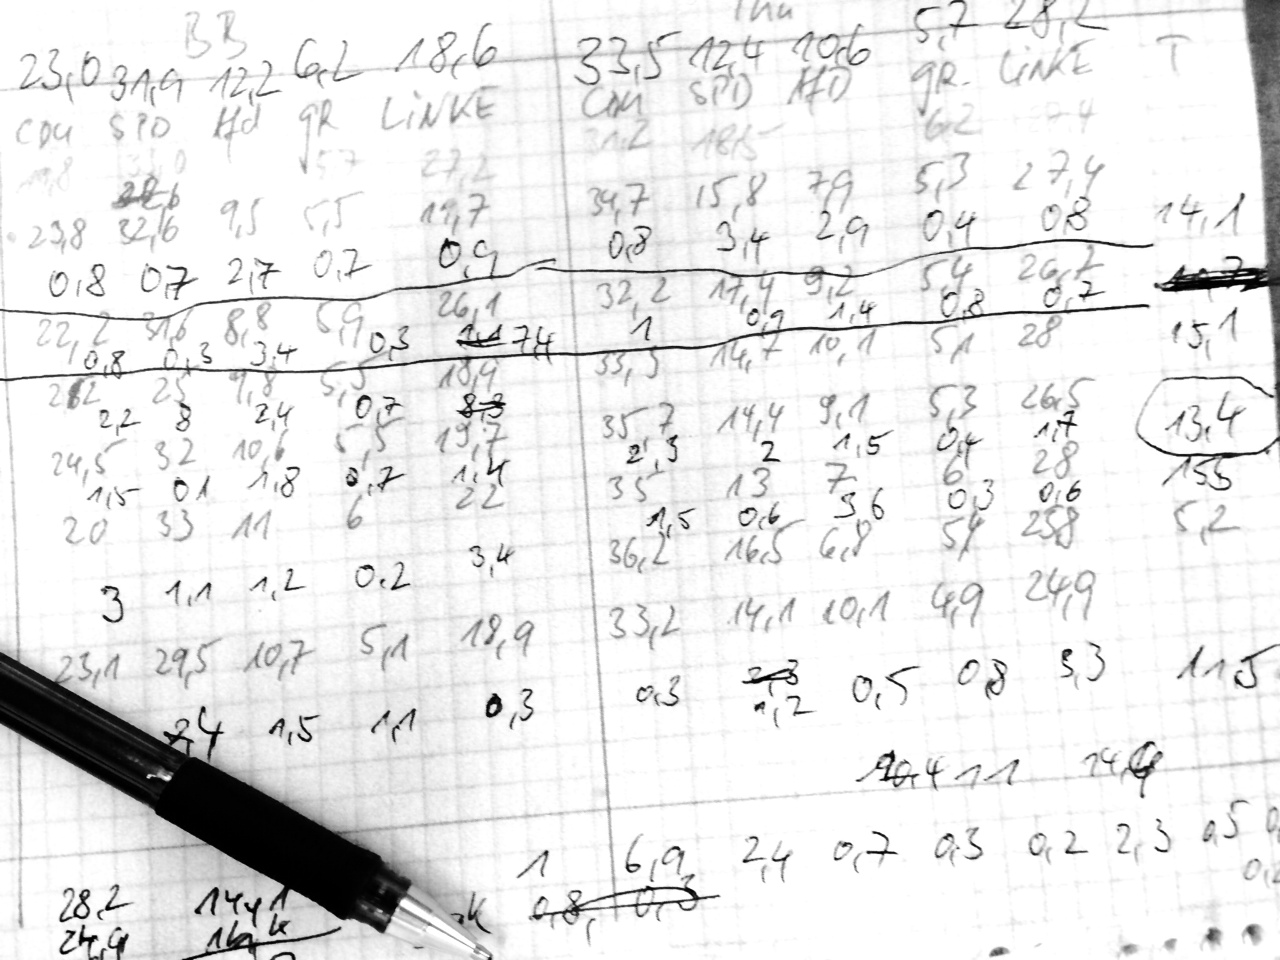 BB Thü
23,0 31,9 12,2 6,2 18,6 33,5 12,4 10,6 5,7 28,2
CDU SPD Afd gR LiNKE CDU SPD AfD gR. LiNKE T
5,7 27,2 31,2 18,5 6,2
23,8 32,6 9,5 5,5 19,7 34,7 15,8 7,9 5,3 27,4
0,8 0,7 2,7 0,7 0,9 0,8 3,4 2,9 0,4 0,8 14,1
22,2 31,6 8,8 5,9 26,1 32,2 17,4 9,2 5,4 26,7
0,8 0,3 3,4 0,3 7,4 1 0,9 1,4 0,8 0,7 15,1
23 9,8 5,5 18,9 33,3 14,7 10,1 5,1 28
2,2 8 2,4 0,7 35,7 14,4 9,1 5,3 26,5 13,4
24,5 32 10,6 5,5 19,7 2,3 2 1,5 0,4 1,7
1,5 0,1 1,8 0,7 1,4 35 13 7 6 28 15,5
20 33 11 6 22 1,5 0,6 3,6 0,3 0,6
36,2 16,5 6,8 5,4 25,8 5,2
3 1,1 1,2 0,2 3,4
23,1 29,5 10,7 5,1 18,9 33,2 14,1 10,1 4,9 24,9
2,4 1,5 1,1 0,3 0,3 1,2 0,5 0,8 3,3 11,5
11
1 6,9 2,4 0,7 0,3 0,2 2,3 0,5
28,2
24,9